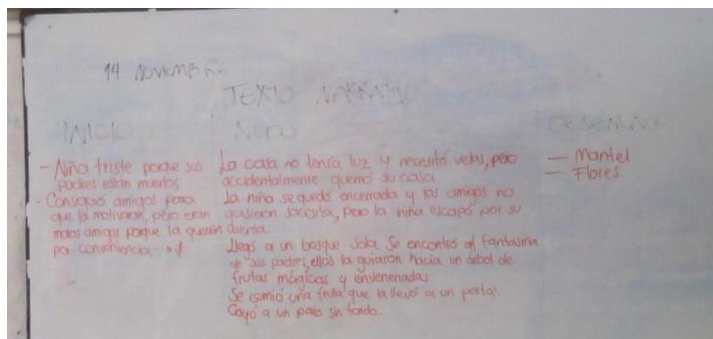 14 NOVIEMBRE
TEXTO NARRATIVO
INICIO
NUDO
DESENLACE
- Niña triste porque sus
padres están muertos
- Consiguió amigos para
que la motivaran, pero eran
malos amigos porque la querían
por conveniencia.
La casa no tenía luz y necesitó velas, pero
accidentalmente quemó su casa
La niña se quedó encerrada y los amigos no
quisieron sacarla, pero la niña escapó por su
cuenta.
Llegó a un bosque sola. Se encontró al fantasma
de sus padres, ellos la guiaron hacia un árbol de
frutas mágicas y envenenadas
Se comió una fruta que la llevó a un portal.
Cayó a un pozo sin fondo.
— Mantel
— Flores